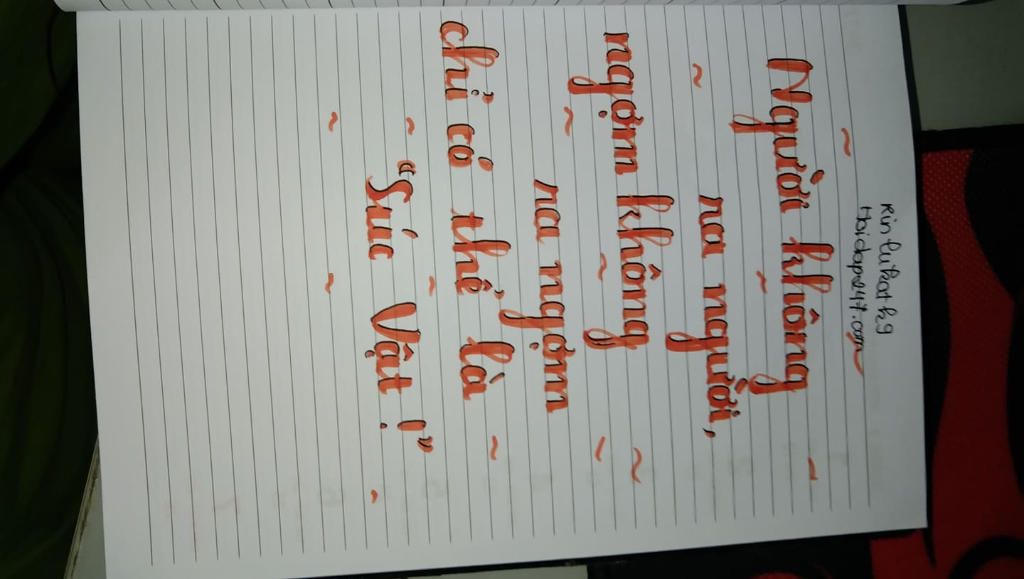 Rin lukatkg
Hoidap247.com
Người không
ra người,
ngợm không
ra ngợm
chỉ có thể là
“Súc Vật!”